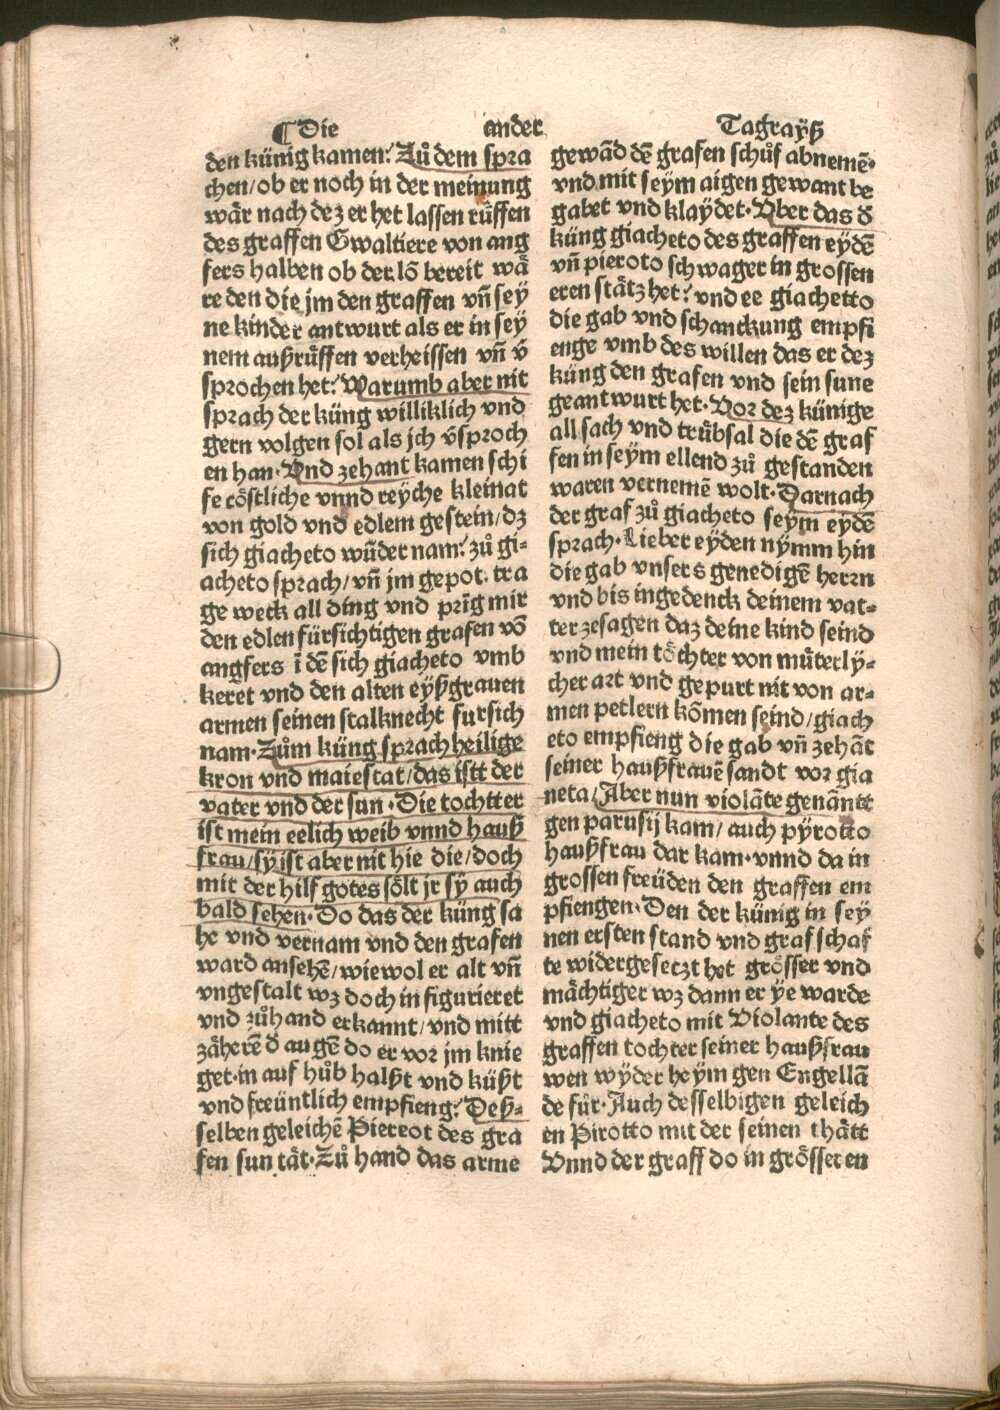 ¶ Die ander Tagrayß
den künig kamen. Zů dem spra
chen / ob er noch in der meinung
wår nach dez er het lassen růffen
des graffen Gwaltiere von ang
fers halben ob der lō bereit wå
re den die jm den graffen vn̄ sey
ne kinder antwurt als er in sey
nem außrůffen verheissen vn̄ v̄
sprochen het. Warumb aber nit
sprach der küng williklich vnd
gern volgen sol als jch v̄sproch
en han. Vnd zehant kamen schi
fe cȫstliche vnnd reÿche kleinat
von gold vnd edlem gestein / dz
sich giacheto wūder nam. zů gi-
acheto sprach / vn̄ jm gepot. tra
ge weck all ding vnd prīg mir
den edlen fürsichtigen grafen vō
angfers ī dē sich giacheto vmb
keret vnd den alten eyßgrauen
armen seinen stalknecht fursich
nam. Zům küng sprach heilige
kron vnd maiestat / das istt der
vater vnd der sun. Die tochtter
ist mein eelich weib vnnd hauß
frau / sÿ ist aber nit hie die / doch
mit der hilf gotes sȫlt jr sÿ auch
bald sehen. Do das der küng sa
he vnd vernam vnd den grafen
ward ansehē / wiewol er alt vn̄
vngestalt wz doch in figurieret
vnd zůhand erkannt / vnd mitt
zåherē d̄ augē do er vor jm knie
get. in auf hůb halßt vnd küßt
vnd freüntlich empfieng. Deß-
selben geleichē Piereot des gra
fen sun tåt. Zů hand das arme
gewād dē grafen schůf abnemē.
vnd mit seym aigen gewant be
gabet vnd klaÿdet. Vber das d̄
küng giacheto des graffen eÿdē
vn̄ pieroto schwager in grossen
eren ståtz het. vnd ee giachetto
die gab vnd schanckung empfi
enge vmb des willen das er dez
küng den grafen vnd sein sune
geantwurt het. Vor dez künige
all sach vnd trůbsal die dē graf
fen in seym ellend zů gestanden
waren vernemē wolt. Darnach
der graf zů giacheto seym eydē
sprach. Lieber eyden nÿmm hin
die gab vnsers genedigē herrn
vnd bis ingedenck deinem vat-
ter zesagen daz deine kind seind
vnd mein tȫchter von můterlÿ-
cher art vnd gepurt nit von ar-
men petlern kōmen seind / giach
eto empfieng die gab vn̄ zehāt
seiner haußfrauē sandt vor gia
neta / Aber nun violāte genāntt
gen parusij kam / auch pÿrotto
haußfrau dar kam. vnnd da in
grossen freüden den graffen em
pfiengen. Den der künig in sey
nen ersten stand vnd grafschaf
te widergesetzt het grȫsser vnd
måchtiger wz dann er ÿe warde
vnd giacheto mit Violante des
graffen tochter seiner haußfrau
wen wÿder heÿm gen Engellā
de fůr. Auch desselbigen geleich
en Pirotto mit der seinen thått
Vnnd der graff do in grȫsseren